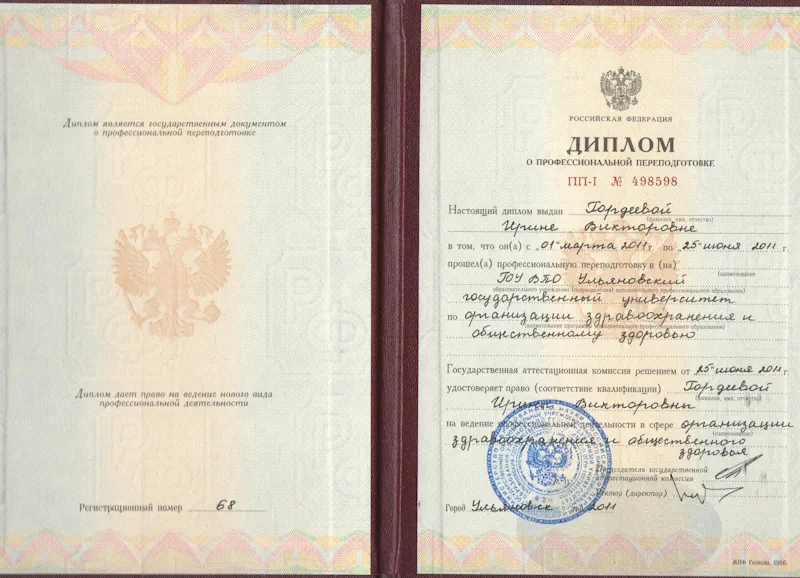 Диплом является государственным документом
о профессиональной переподготовке
Диплом дает право на ведение нового вида
профессиональной деятельности
Регистрационный номер 68
РОССИЙСКАЯ ФЕДЕРАЦИЯ
ДИПЛОМ
О ПРОФЕССИОНАЛЬНОЙ ПЕРЕПОДГОТОВКЕ
ПП-I № 498598
Настоящий диплом выдан Гордеевой
(фамилия, имя, отчество)
Ирине Викторовне
в том, что он(а) с „01" марта 2011 г. по „25" июня 2011 г.
прошел(а) профессиональную переподготовку в (на)
(наименование
ГОУ ВПО Ульяновский
образовательного учреждения (подразделения) дополнительного профессионального образования)
государственный университет
по организации здравоохранения и
(наименование программы дополнительного профессионального образования)
общественному здоровью
Государственная аттестационная комиссия решением от „25" июня 2011 г.
удостоверяет право (соответствие квалификации) Гордеевой
(фамилия, имя, отчество)
Ирины Викторовны
на ведение профессиональной деятельности в сфере организации
(наименование)
здравоохранения и общественного
здоровья
Председатель государственной
аттестационной комиссии
Ректор (директор)
Город Ульяновск год 2011
МПФ Гознака. 1996.